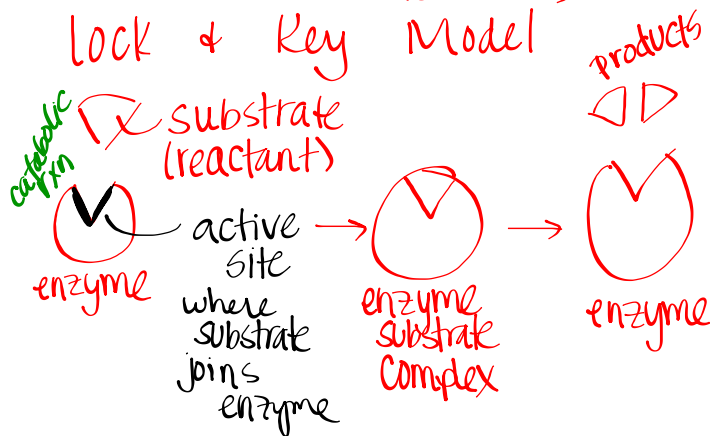 lock & Key Model
products
catabolic
rxn
substrate
(reactant)
active
site
where
substrate
joins
enzyme
enzyme
enzyme
substrate
complex
enzyme